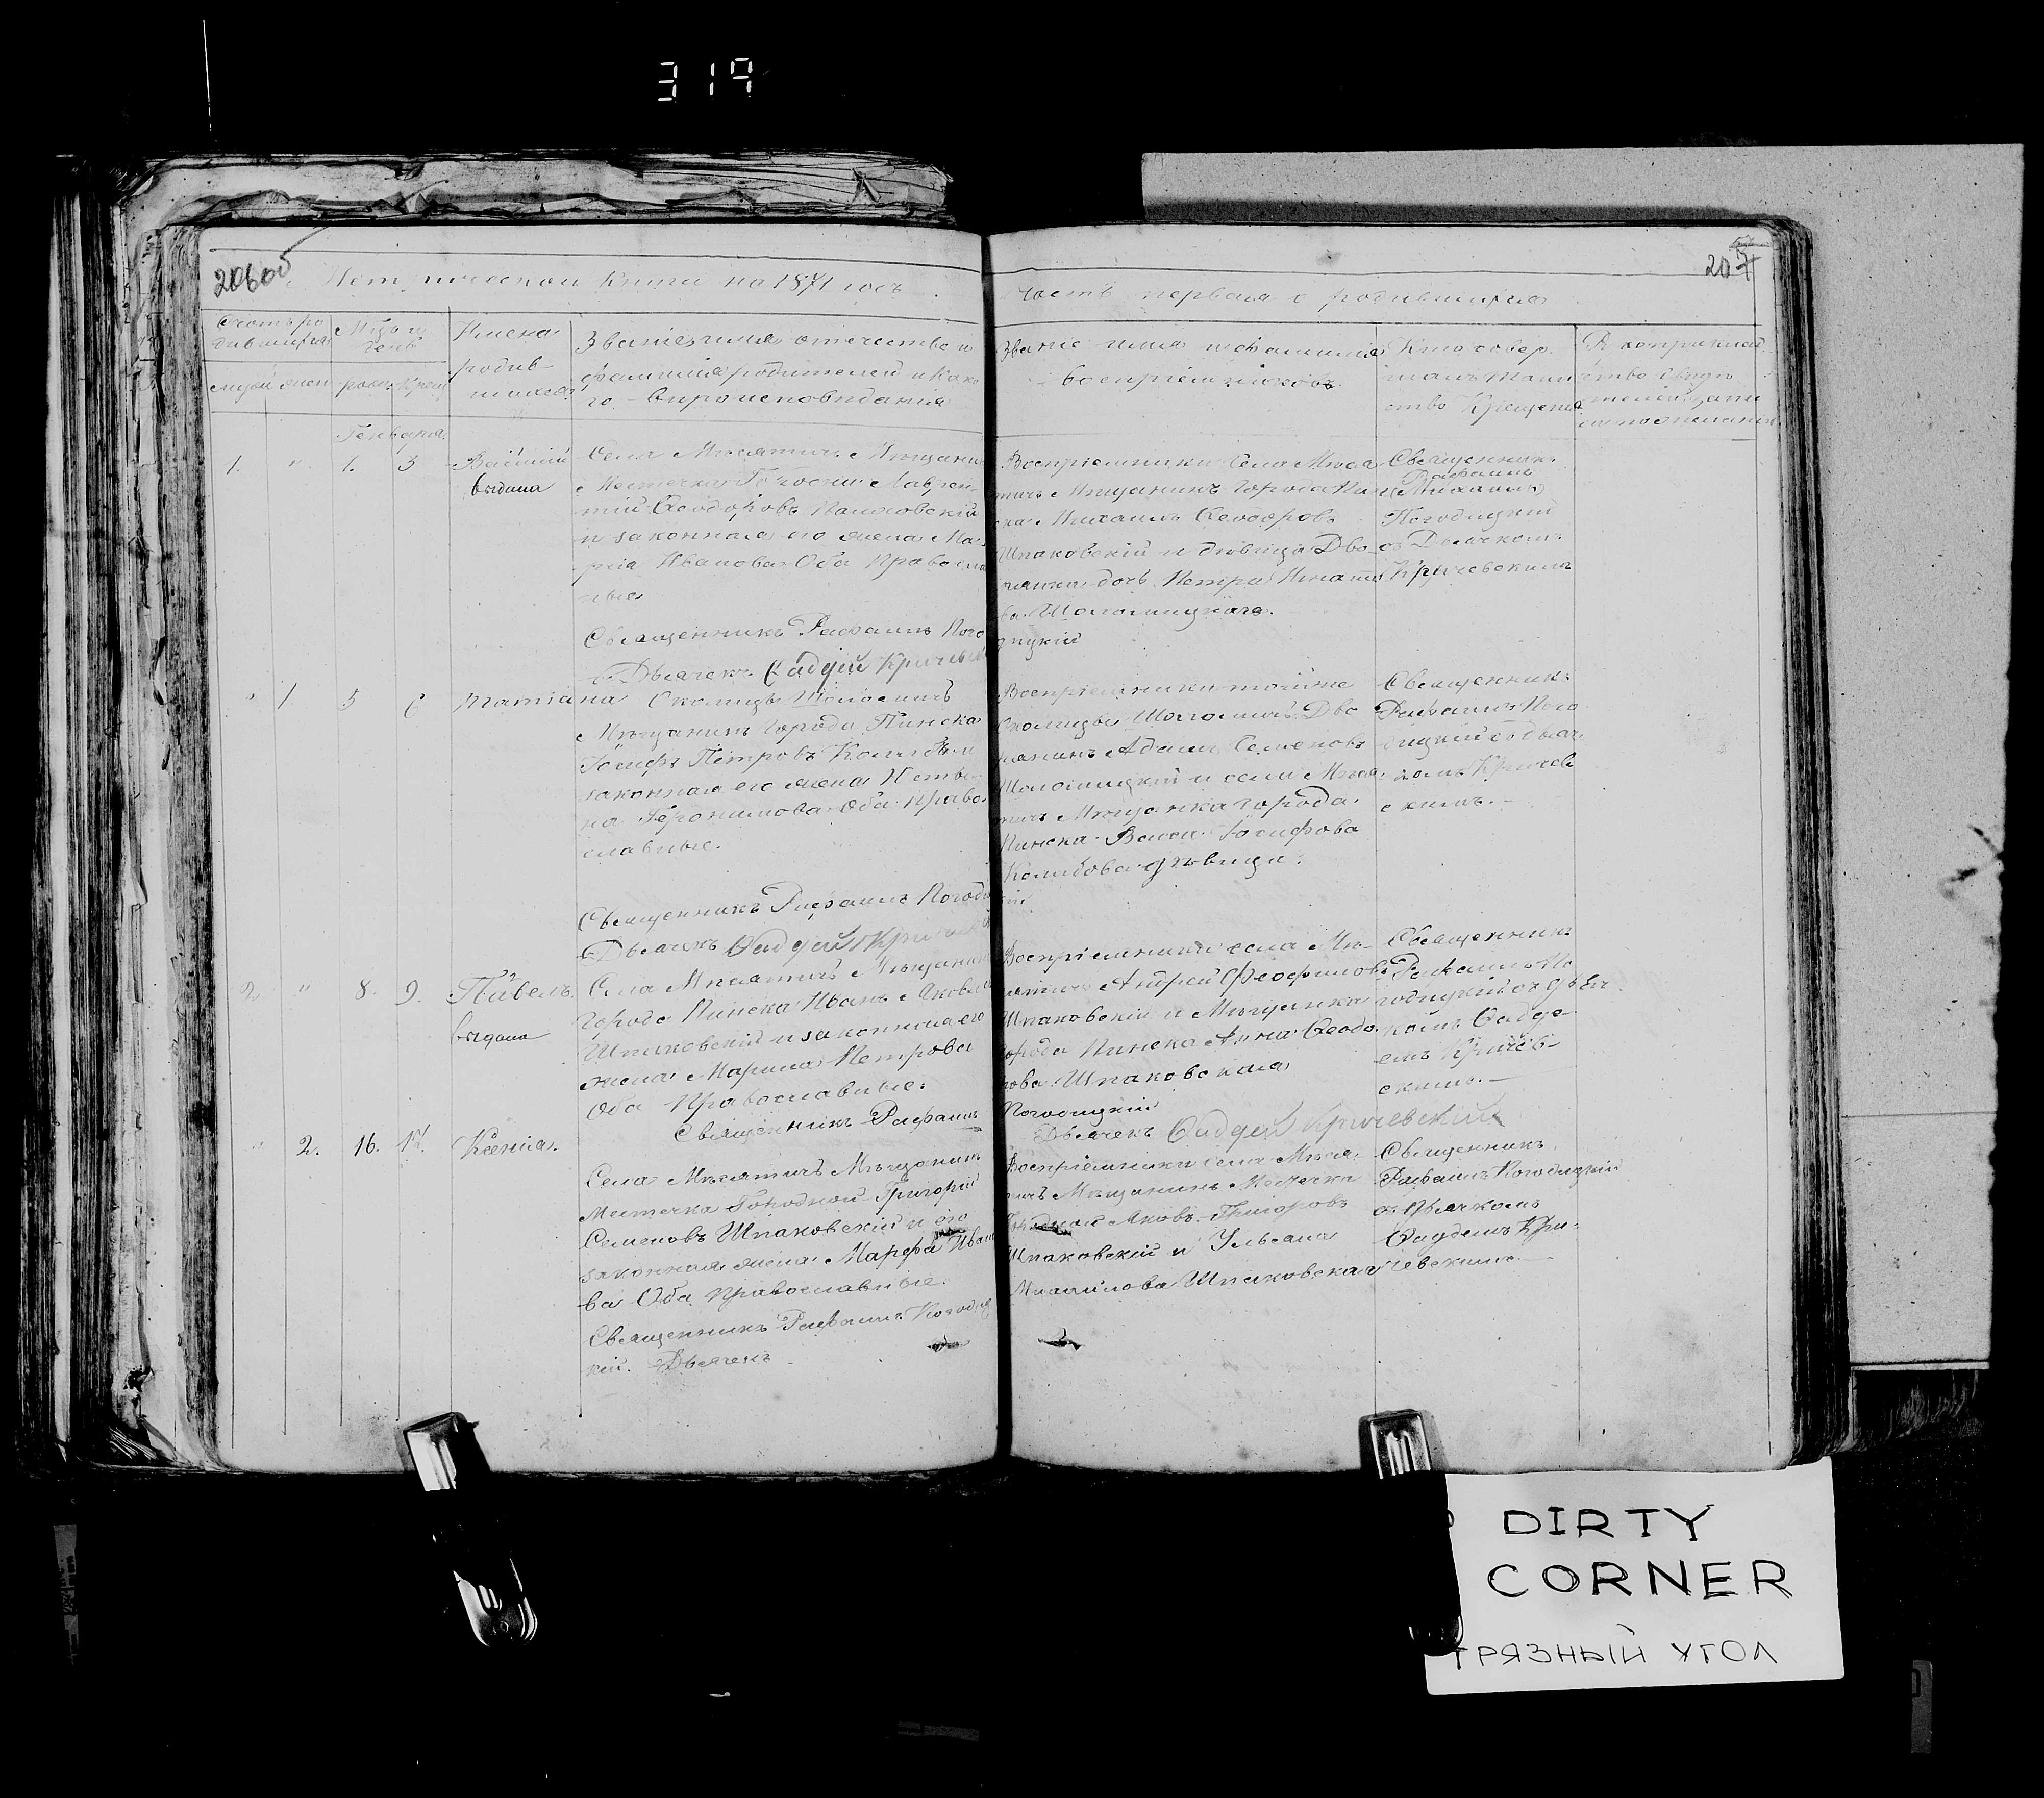 319
206об
Метрической Книги на 1871 годъ
Часть первая о родившихся
207
Счотъ ро
дившихся
Мѣсяцъ и
день
Имена
родив-
шихся
Званіе, имя, отечество и
фамилія родителей и како
го вѣроисповѣданія
муж жен
рожд. Крещ
Званіе имя и фамилія
воспріемниковъ
Кто совер
шалъ Таин
ство Крещенія
Рукоприклад
ство свидѣ
телей запи
си по желанію
Генваря
1. " 1. 3
Василій
выдана
Села Мѣсятичъ Мѣщанинъ
Местечка
Лаврен-
тій Ѳеодоровъ
и законная его жена Ма-
рія Иванова Оба Православ
ные
Священникъ Рафаилъ Пого
Дьячекъ Ѳадѣй Кричевск
Воспріемники Села Мѣся
тичъ Мѣщанинъ Города Пин
ска Михаилъ Ѳеодоровъ
Шпаковскій и дѣвица Дво
рянка дочь Петра Игнато
ва Шоломицкаго.
дицкій
Священникъ
Рафаилъ
Погодицкій
съ Дьячкомъ
Кричевскимъ
" 1 5 6
Татіана
Околицы Шоломичъ
Мѣщанинъ города Пинска
Іосифъ Петровъ
законная его жена
на Іеронимова Оба Право
славные.
Священникъ Рафаилъ Погоди
Дьячекъ Ѳадѣй Кричевскі
Воспріемники тойже
Околицы Шоломичъ Дво
рянинъ Адамъ Семеновъ
Шоломицкій и села Мѣся
тичъ Мѣщанка города
Пинска Васса Іосифова
дѣвица.
кій
Священникъ
Рафаилъ Пого
дицкій съ дьяч
комъ Кричев
скимъ.
2. " 8. 9.
Павелъ
выдана
Села Мѣсятичъ Мѣщанинъ
Города Пинска Иванъ Яковле
Шпаковскій и законная его
жена Марина Петрова
Оба Православные.
Священникъ Рафаилъ
Воспріемники села Мѣ-
сятичъ Андрей Феофиловъ
Шпаковскій и Мѣщанка
города Пинска Анна Ѳеодо
рова Шпаковская
Погодицкій
Дьячекъ Ѳадѣй Кричевскій
Священникъ
Рафаилъ По
годицкій съ дьяч
комъ Ѳадѣе-
емъ Кричев-
скимъ.
" 2. 16. 17.
Ксенія.
Села Мѣсятичъ Мѣщанинъ
Местечка Городной Григорій
Семеновъ Шпаковскій и его
законная жена Марфа Ивано
ва Оба Православные.
Священникъ Рафаилъ Погодиц
кій. Дьячекъ
Воспріемники села Мѣся
тичъ Мѣщанинъ Местечка
Городной Яковъ Григоровъ
Шпаковскій и Ульяна
Михайлова Шпаковская
Священникъ
Рафаилъ Погодицкій
съ Дьячкомъ
Ѳаддеемъ Кри-
чевскимъ
DIRTY
CORNER
ГРЯЗНЫЙ УГОЛ